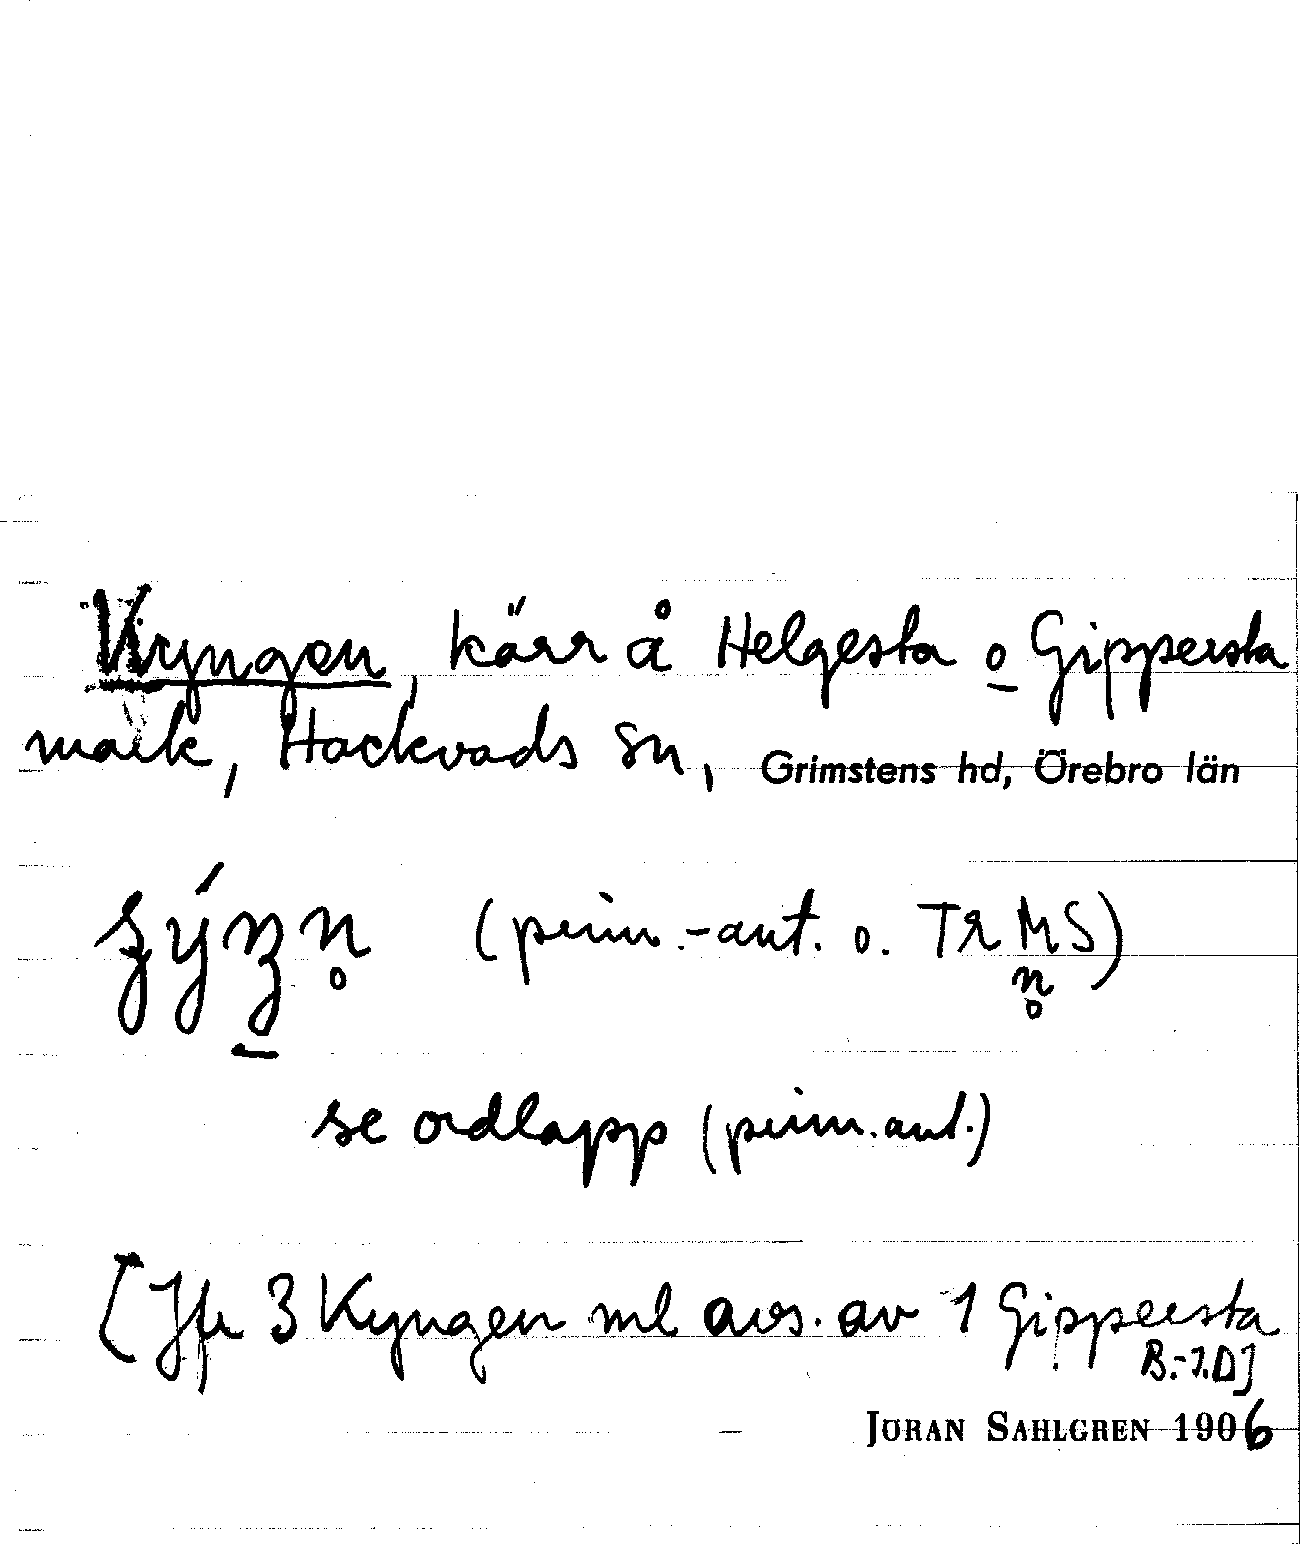 Kyngen, kärr å Helgesta o Gippersta
mark, Hackvads sn, Grimstens hd, Örebro län
(prim.-ant. o. TRMS)
n̥
se ordlapp (prim.ant.)
[Jfr 3 Kyngen ml avs. av 1 Gippersta
B.-I.D]
JÖRAN SAHLGREN 1906